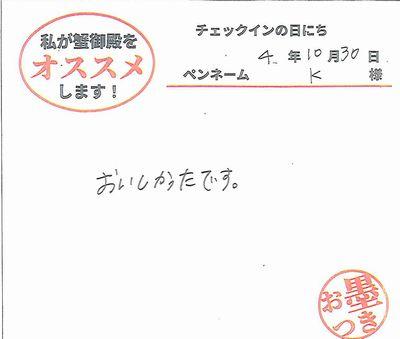 私が蟹御殿を
オススメ
します！
チェックインの日にち
4. 年 10 月 30 日
ペンネーム K 様
おいしかったです。
お墨
つき